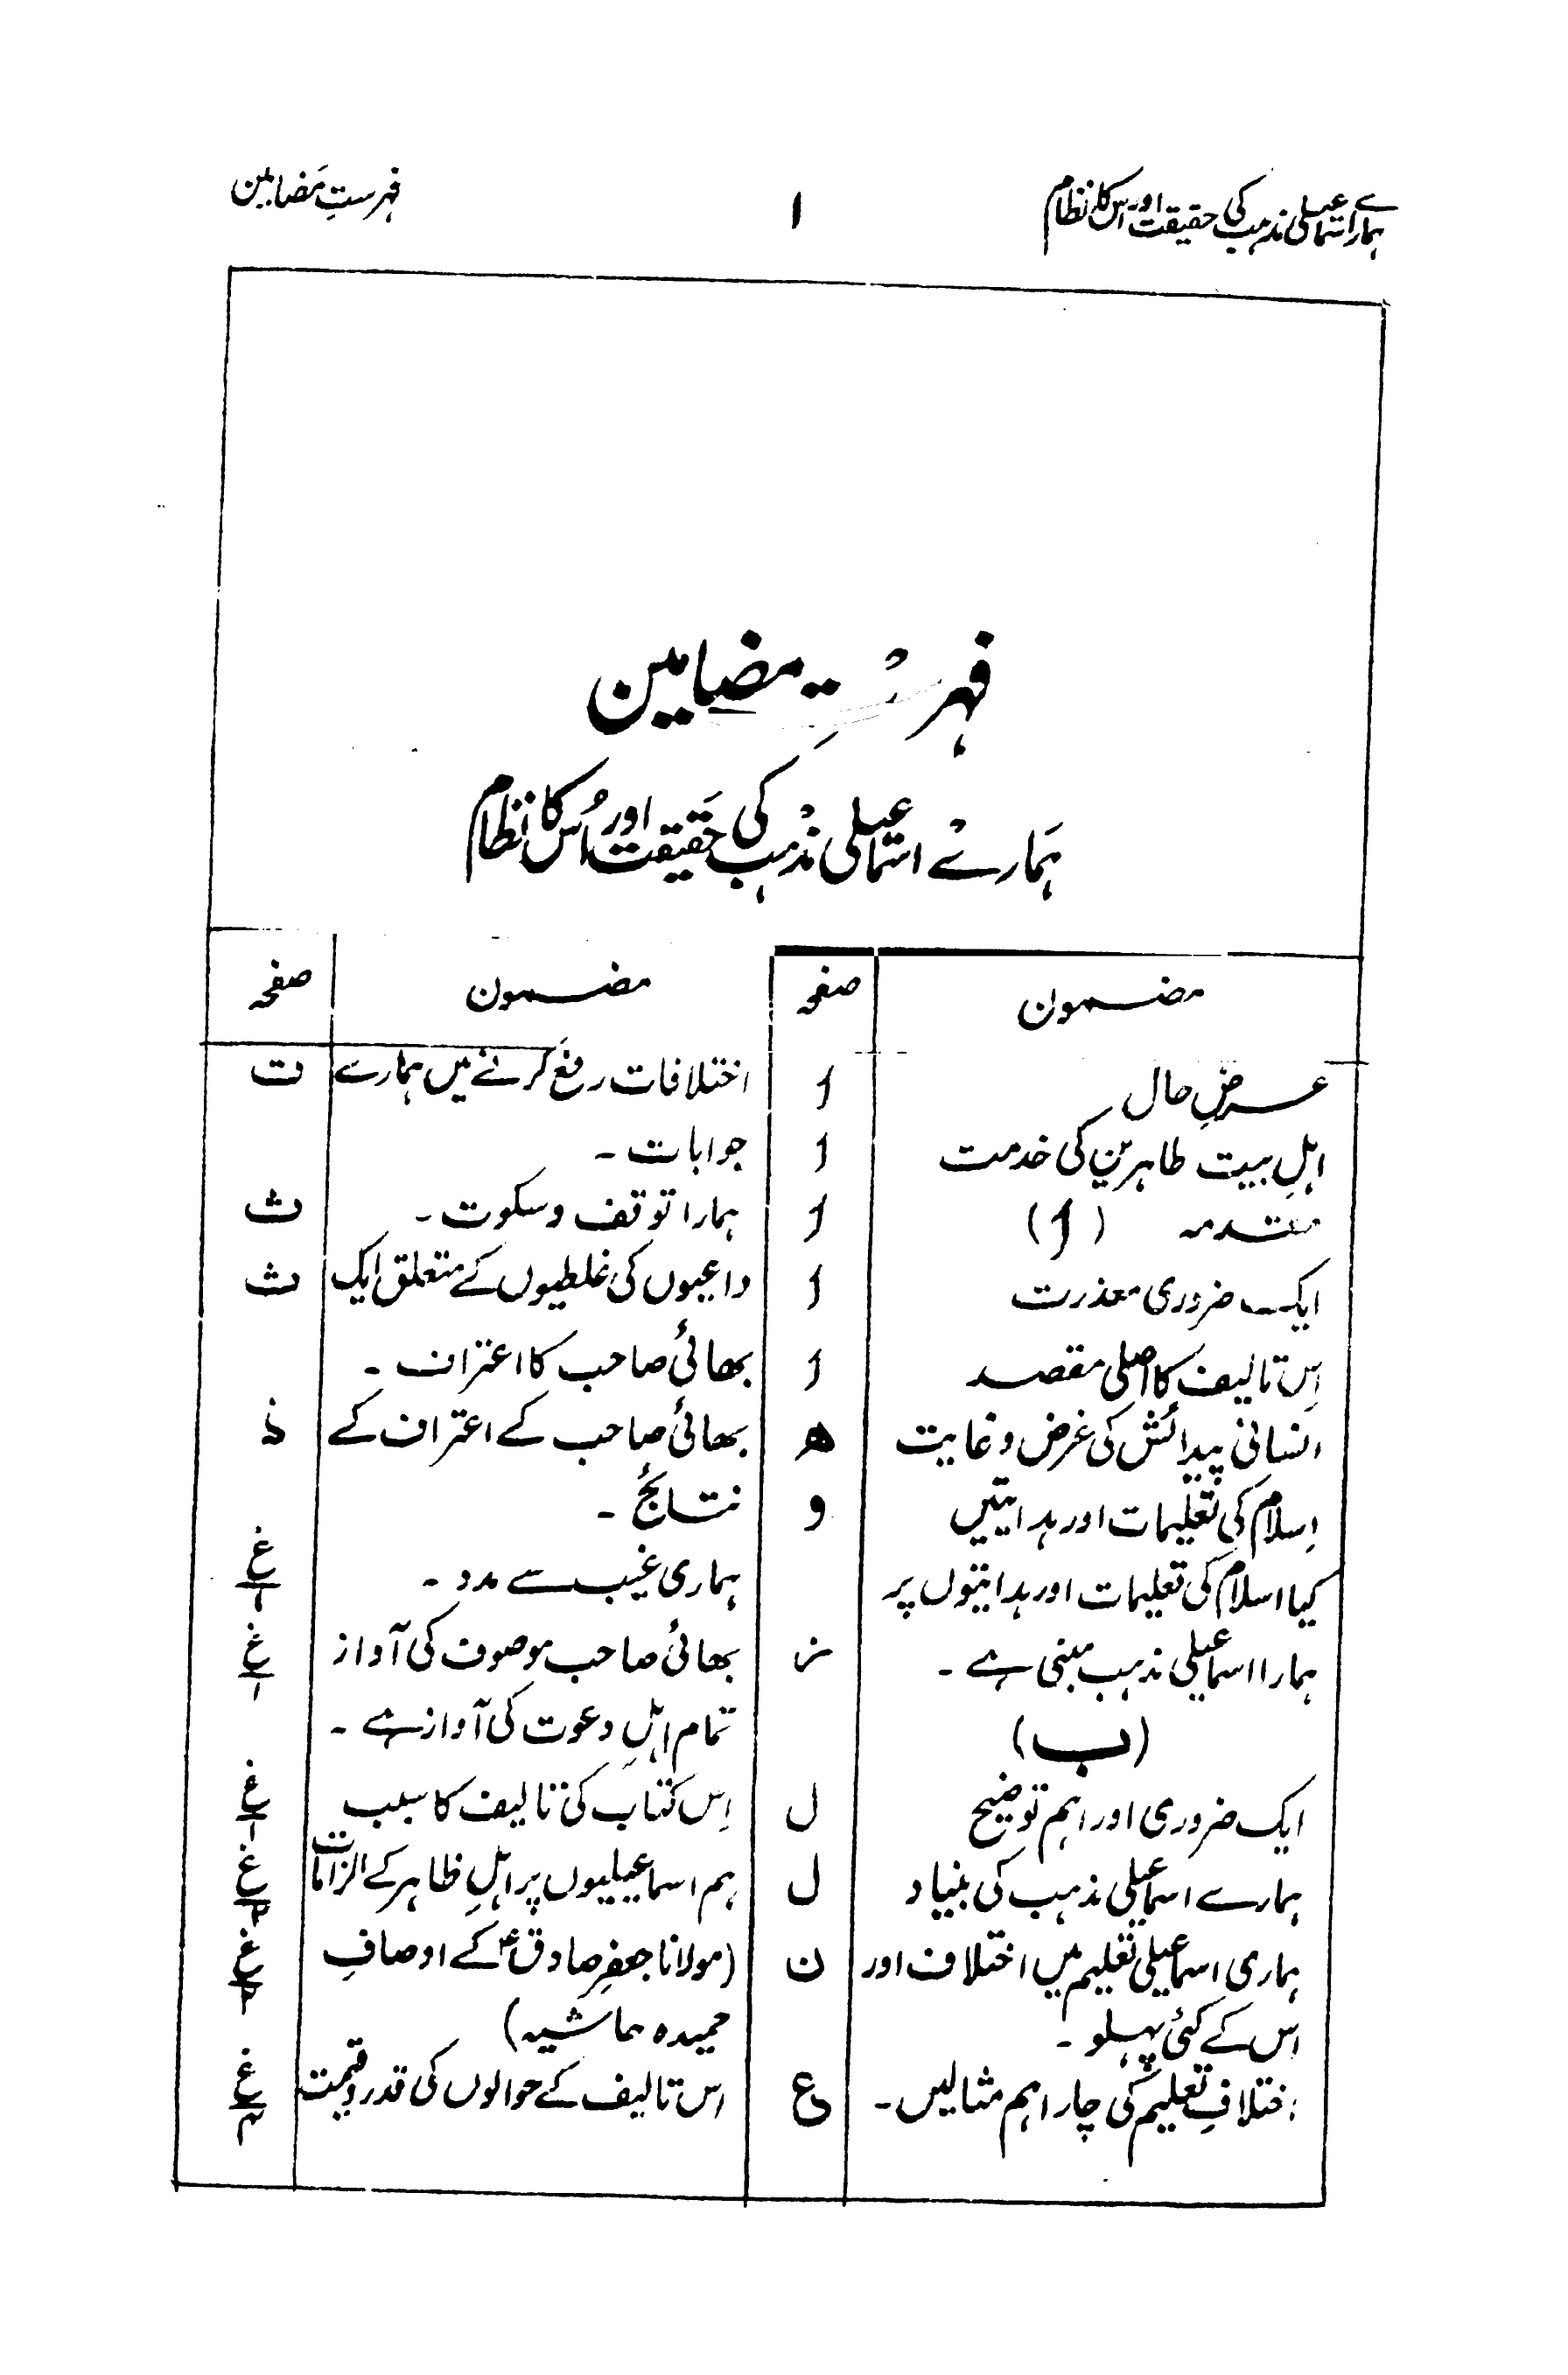 ہمارے اسماعیلی مذہب کی حقیقت اور اس کا نظام
۱
فہرستِ مضامین
فہرستِ مضامین
ہمارے اسماعیلی مذہب کی حقیقت اور اُس کا نظام
مضمون
صفحہ
عرضِ حال
أ
اہلِ بیت طاہرین کی خدمت
أ
مقدمہ (أ)
أ
ایک ضروری معذرت
أ
اِس تالیف کا اصلی مقصد
أ
انسانی پیدائش کی غرض و غایت
ھ
اِسلام کی تعلیمات اور ہدایتیں
و
کیا اسلام کی تعلیمات اور ہدایتوں پر
ہمارا اسماعیلی مذہب مبنی ہے۔
ز
(ب)
ایک ضروری اور اہم توضیح
ل
ہمارے اسماعیلی مذہب کی بنیاد
ل
ہماری اسماعیلی تعلیم میں اختلاف اور
ن
اس کے کئی پہلو۔
اختلافِ تعلیم کی چار اہم مثالیں۔
ع
مضمون
صفحہ
اختلافات رفع کرنے میں ہمارے
ت
جوابات۔
ہمارا توقف و سکوت۔
ث
داعیوں کی غلطیوں کے متعلق ایک
ث
بھائی صاحب کا اعتراف۔
بھائی صاحب کے اعتراف کے
ذ
نتائج۔
ہماری غیب سے مدد۔
غ/۱
بھائی صاحب موصوف کی آواز
غ/۱
تمام اہلِ دعوت کی آواز ہے۔
اِس کتاب کی تالیف کا سبب
غ/۱
ہم اسماعیلیوں پر اہلِ ظاہر کے الزامات
غ/۲
(مولانا جعفرِ صادق ؑ کے اوصافِ
غ/۲
حمیدہ حاشیہ)
اس تالیف کے حوالوں کی قدر و قیمت
غ/۳